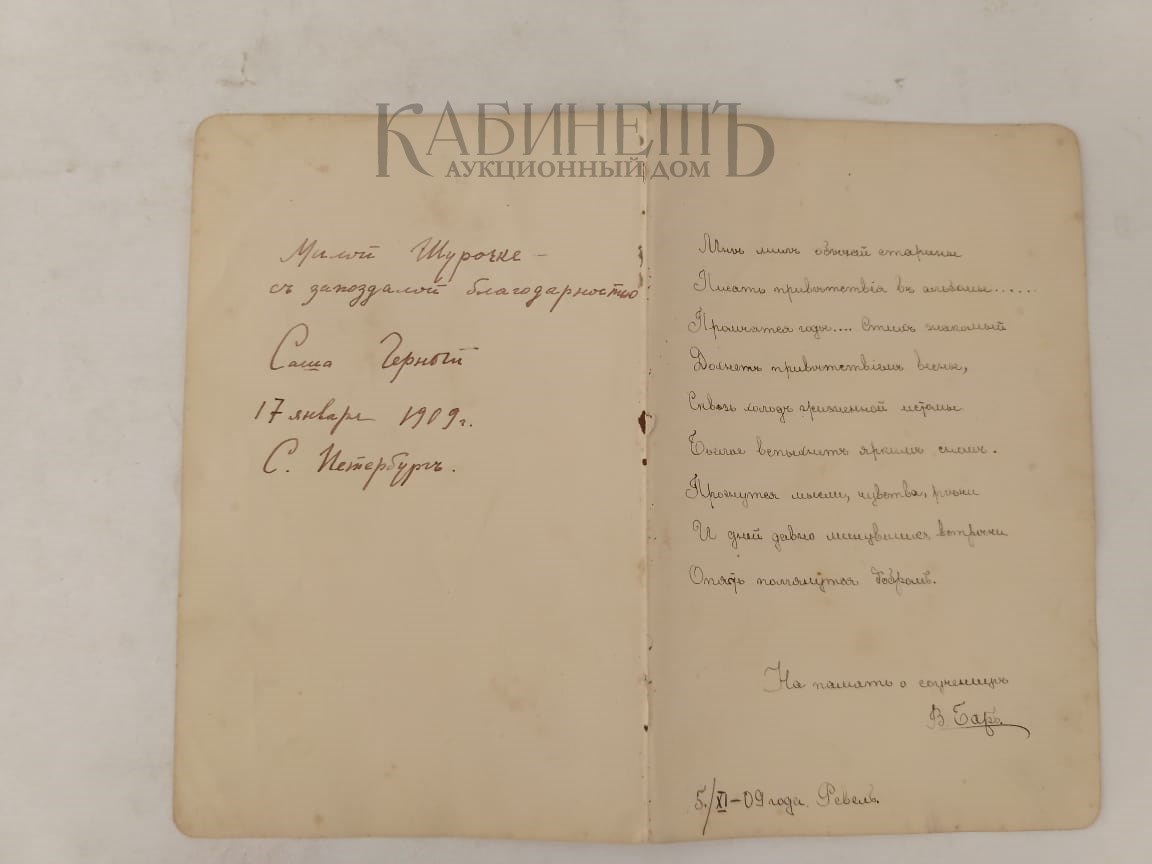 КАБИНЕТЪ
АУКЦИОННЫЙ ДОМ
Милой Шурочке –
съ запоздалой благодарностью
Саша Черный
17 января 1909 г.
С. Петербургъ.
Милъ обычай старины
Писать привѣтствія въ альбомы......
Промчатся годы.... Стихъ знакомый
Дохнетъ привѣтствіемъ весны,
Сквозь холодъ жизненной истомы
Былое вспыхнетъ яркимъ сномъ.
Проснутся мысли, чувства, рѣчи
И дней давно минувшихъ встрѣчи
Опять помянутся добромъ.
На память о соученицѣ
В. Баръ.
5/XI–09 года. Ревель.